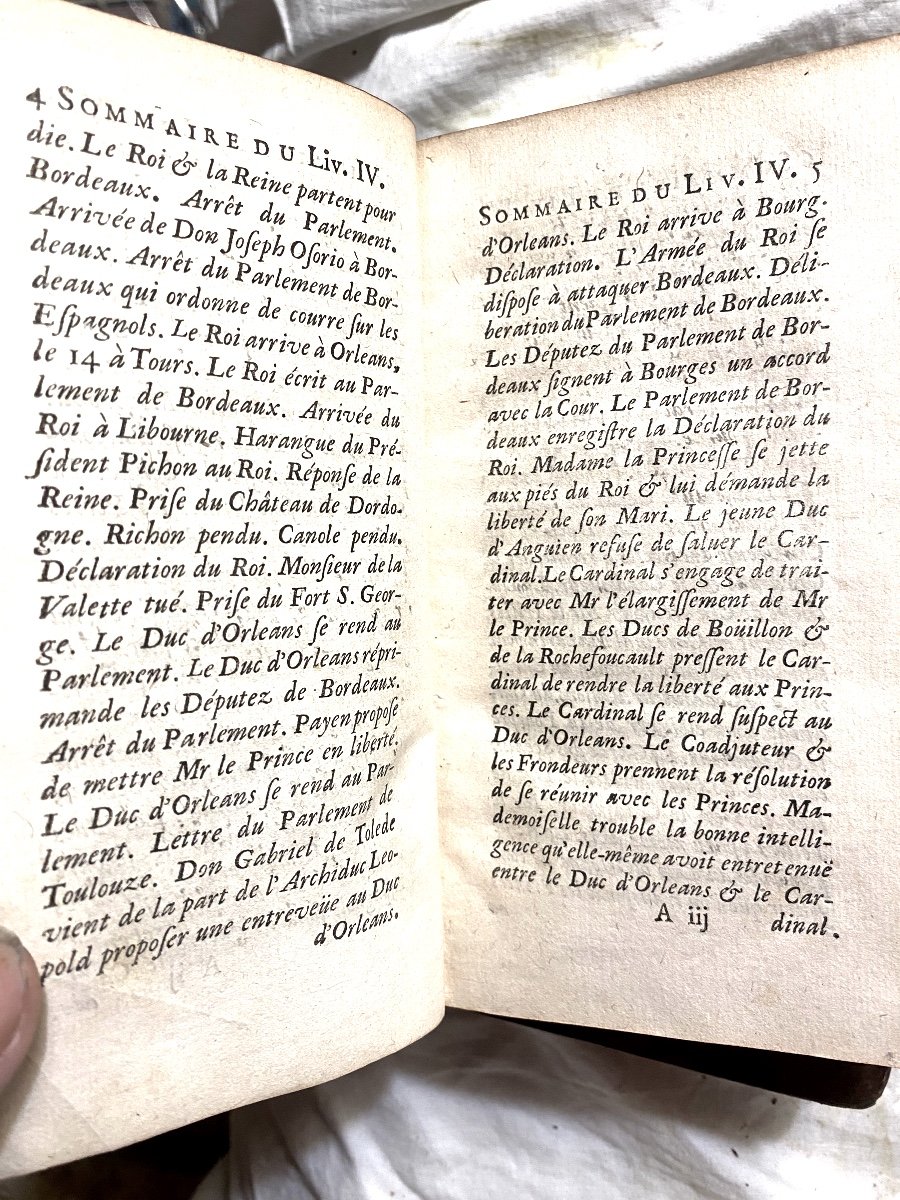 4 SOMMAIRE DU LIV. IV.
die. Le Roi & la Reine partent pour
Bordeaux. Arrêt du Parlement.
Arrivée de Don Joſeph Oſorio à Bor-
deaux. Arrêt du Parlement de Bor-
deaux qui ordonne de courre ſur les
Eſpagnols. Le Roi arrive à Orleans,
le 14 à Tours. Le Roi écrit au Par-
lement de Bordeaux. Arrivée du
Roi à Libourne. Harangue du Pré-
ſident Pichon au Roi. Réponſe de la
Reine. Priſe du Château de Dordo-
gne. Richon pendu. Canole pendu.
Déclaration du Roi. Monſieur de la
Valette tué. Priſe du Fort S. Geor-
ge. Le Duc d'Orleans ſe rend au
Parlement. Le Duc d'Orleans répri-
mande les Députez de Bordeaux.
Arrêt du Parlement. Payen propoſe
de mettre Mr le Prince en liberté.
Le Duc d'Orleans ſe rend au Par-
lement. Lettre du Parlement de
Toulouze. Don Gabriel de Tolede
vient de la part de l'Archiduc Leo-
pold propoſer une entreveüe au Duc
d'Orleans.
SOMMAIRE DU LIV. IV. 5
d'Orleans. Le Roi arrive à Bourg.
Déclaration. L'Armée du Roi ſe
diſpoſe à attaquer Bordeaux. Déli-
beration du Parlement de Bordeaux.
Les Députez du Parlement de Bor-
deaux ſignent à Bourges un accord
avec la Cour. Le Parlement de Bor-
deaux enregiſtre la Déclaration du
Roi. Madame la Princeſſe ſe jette
aux piés du Roi & lui démande la
liberté de ſon Mari. Le jeune Duc
d'Anguien refuſe de ſaluer le Car-
dinal. Le Cardinal s'engage de trai-
ter avec Mr l'élargiſſement de Mr
le Prince. Les Ducs de Boüillon &
de la Rochefoucault preſſent le Car-
dinal de rendre la liberté aux Prin-
ces. Le Cardinal ſe rend ſuſpect au
Duc d'Orleans. Le Coadjuteur &
les Frondeurs prennent la réſolution
de ſe réunir avec les Princes. Ma-
demoiſelle trouble la bonne intelli-
gence qu'elle-même avoit entretenuë
entre le Duc d'Orleans & le Car-
A iij dinal.